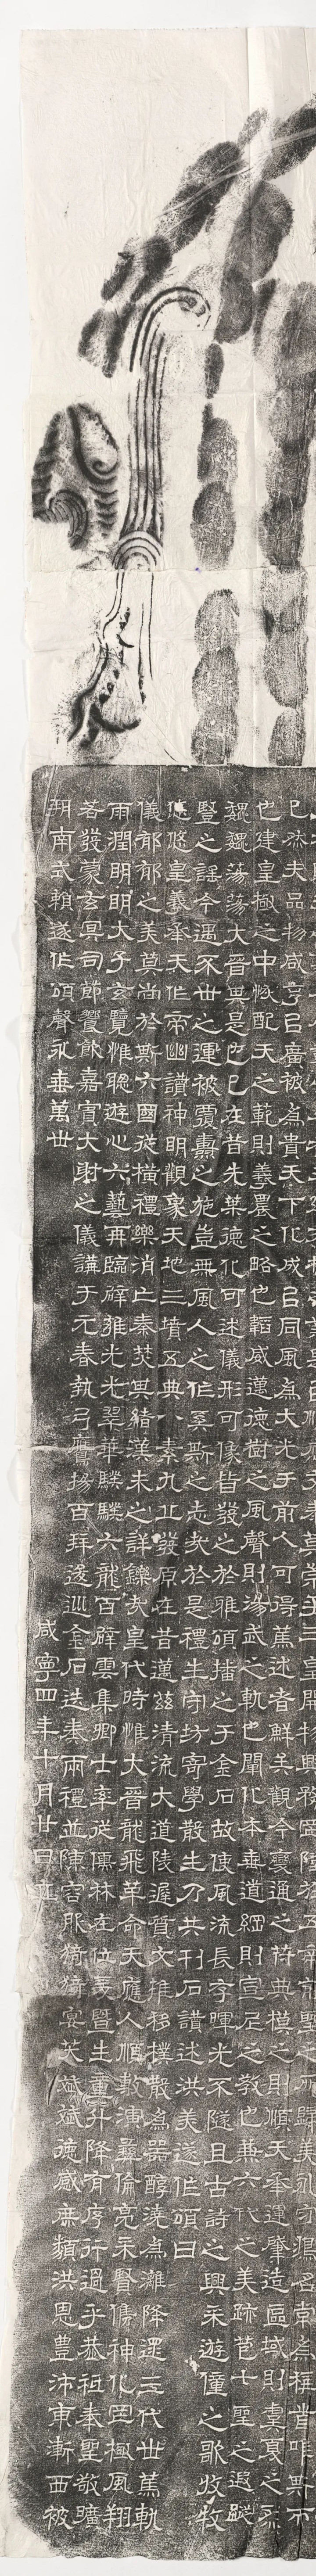 已然夫品物咸亨以廣被為貴天下化成以同風為大光于前人可得蔫述者鮮矣觀今變通之符典模之則順天承運肇造區域則虞夏之烈
也建皇極之中恢配天之範則羲農之略也韜威邁德樹之風聲則湯武之軌也闡化本垂道綱則宣尼之教也兼六代之美跡苞七聖之遐蹤
巍巍蕩蕩大晉其是也已在昔先葉德化可述儀形可像皆發之於雅頌播之于金石故使風流長存暉光不隧且古詩之興采遊僮之歌收牧
豎之謠今遇不世之運被覆燾之施豈無風人之作奚斯之志哉於是禮生守坊寄學散生乃共刊石讚述洪美遂作頌曰
悠悠皇羲承天作帝幽讚神明觀象天地三墳五典八素九丘發原在昔邁茲清流大道陵遲質文推移樸散為器醇澆為漓降逮三代世篤軌
儀郁郁之美莫尚於斯六國從橫禮樂消亡秦焚其緒漢未之詳鑠哉皇代時惟大晉龍飛革命天應人順敷演彝倫亮采賢儁神化罔極風翔
雨潤明明大子玄覽惟聰遊心六藝再臨辟雍光光翠華騤騤六龍百辟雲集卿士率從儒林在位爰暨生童升降有序行過乎恭祗奉聖敬曠
若發蒙玄冥司節饗飲嘉賓大射之儀講于元春執弓鷹揚百拜逡巡金石迭奏兩禮並陳容服猗猗宴笑斌斌德感庶類洪恩豐沛東漸西被
朔南式賴遂作頌聲永垂萬世
咸寧四年十月廿日立